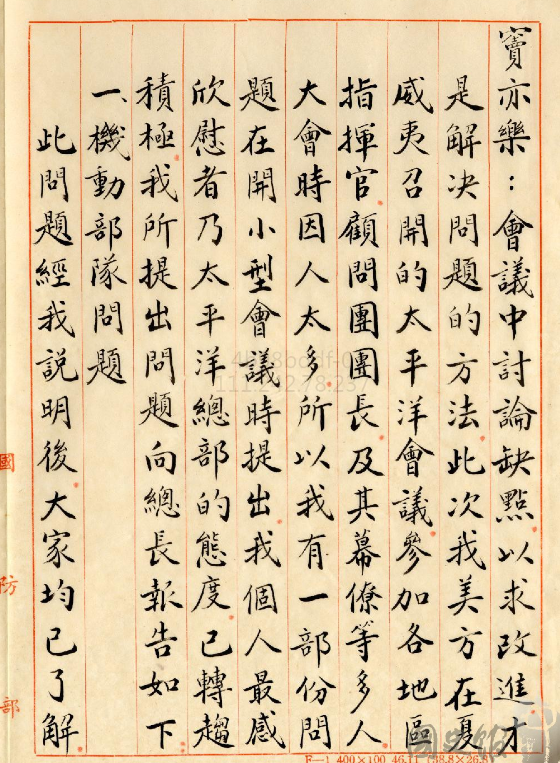 竇亦樂：會議中討論缺點以求改進才
是解決問題的方法此次我美方在夏
威夷召開的太平洋會議參加各地區
指揮官顧問團團長及其幕僚等多人
大會時因人太多所以我有一部份問
題在開小型會議時提出我個人最感
欣慰者乃太平洋總部的態度已轉趨
積極我所提出問題向總長報告如下
一、機動部隊問題
此問題經我説明後大家均已了解
國防部